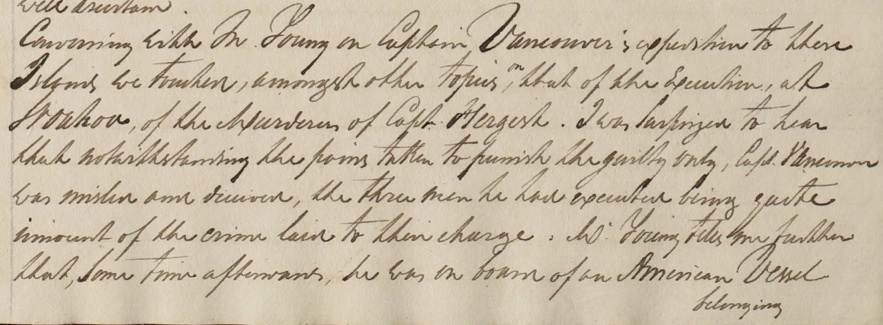 well ascertain.
Conversing with Mr. Young on Captain Vancouver's expedition to these
Islands we touched, amongst other topics, on that of the Execution, at
Woahoo, of the Murderers of Capt. Hergest. I was surprized to hear
that notwithstanding the pains taken to punish the guilty only, Capt. Vancouver
was misled and deceived, the three men he had executed being quite
innocent of the crime laid to their charge. Mr. Young tells me further
that, some time afterwards, he was on board of an American Vessel
belonging